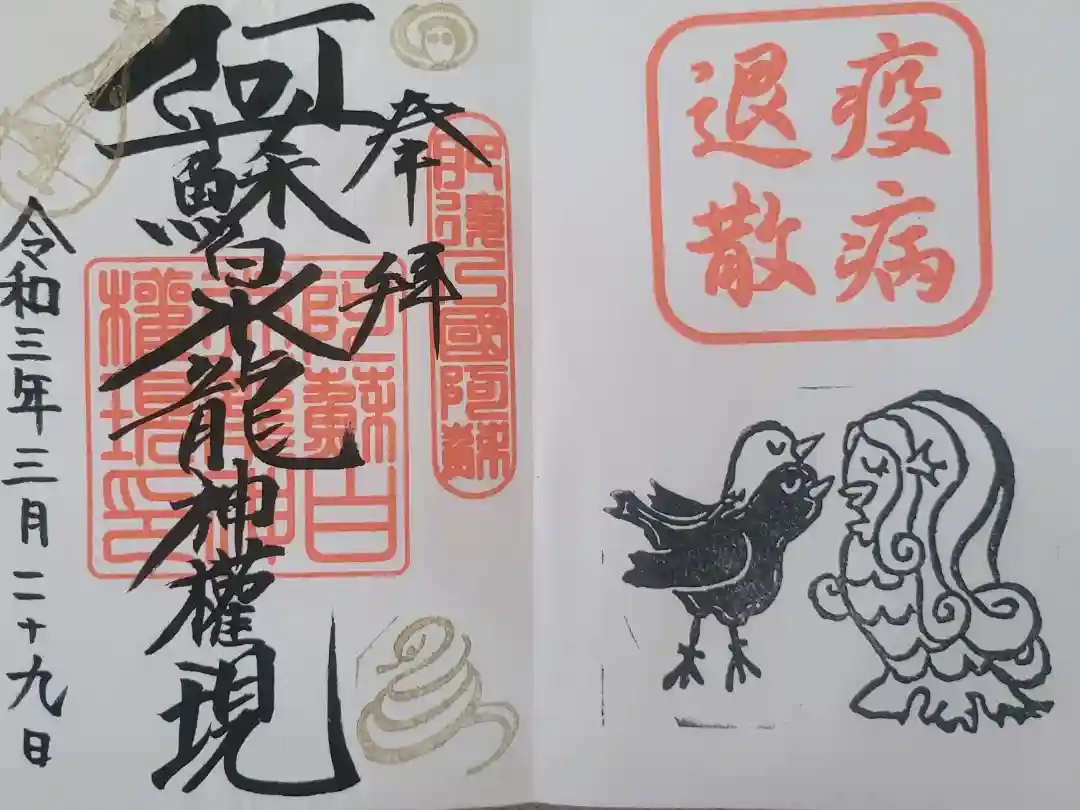 疫病
退散
奉拝
肥後乃國阿蘇
阿蘇白水龍神權現
阿蘇白
水龍神
權現印
令和三年三月二十九日